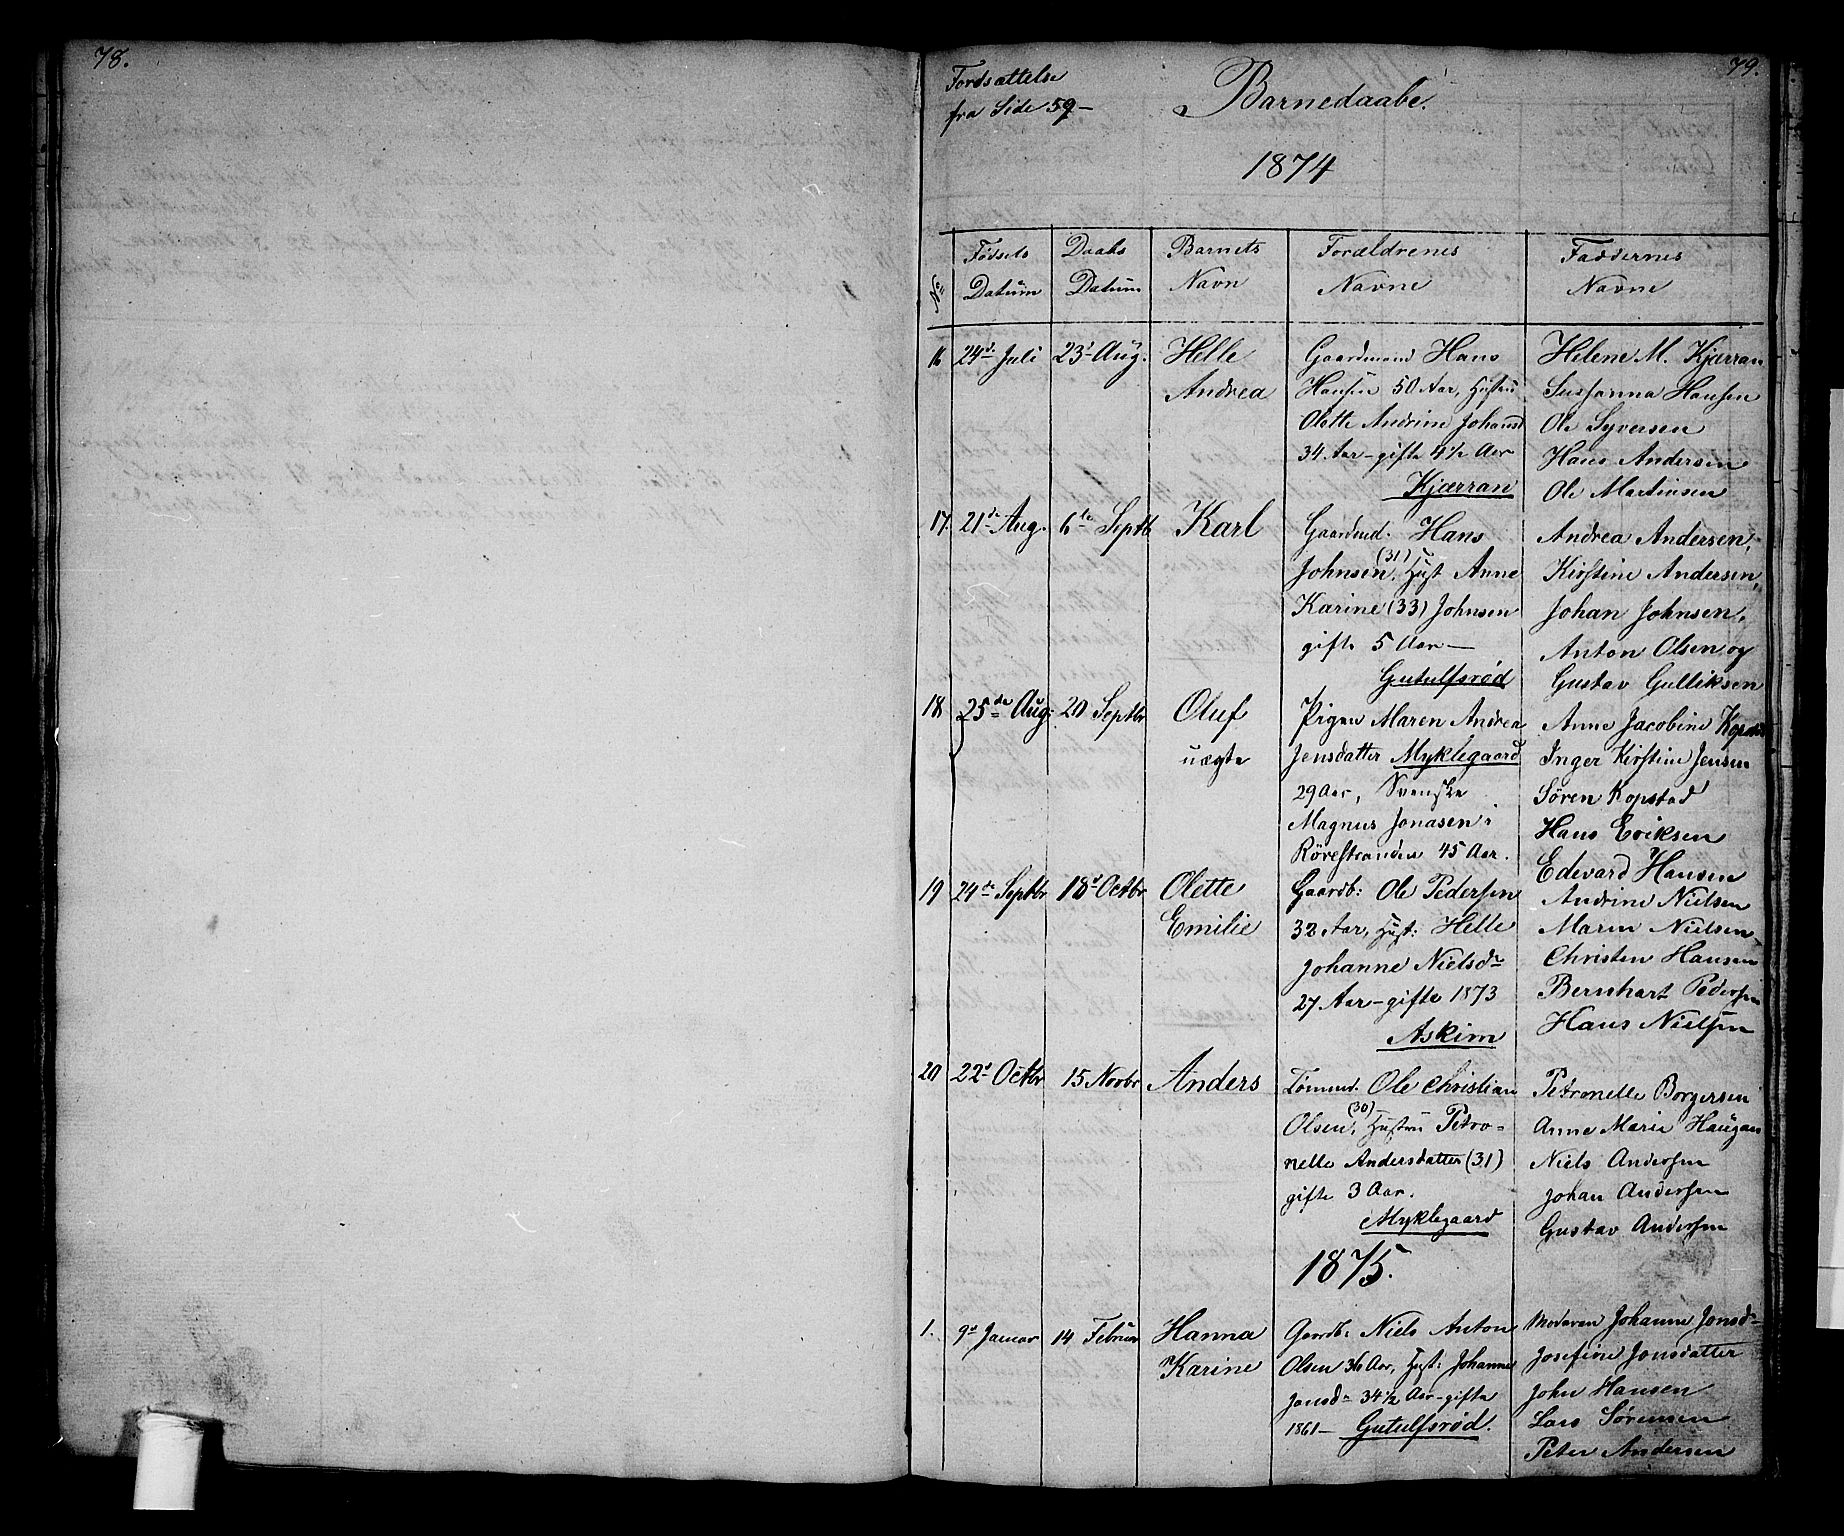 78.
79.
Fordsættelse
fra Side 59-
Barnedaabe.
1874
No
Fødsels Datum
Daabs Datum
Barnets Navn
Forældrenes Navne
Faddernes Navne
16
24d. Juli
23d Aug.
Helle
Andrea
Gaardmand Hans
Hansen 50 Aar, Hustru
Olette Andrine Johansd
34 Aar - gifte 4 1/2 Aar
Kjærran
Helene M. Kjærran
Susanna Hansen
Ole Syversen
Hans Andersen
Ole Martinsen
17.
21de Aug.
6te Septb
Karl
Gaardmd. Hans
Johnsen (31), Hust Anne
Karine (33) Johnsen
gifte 5 Aar —
Gutulfsrød
Andrea Andersen,
Kirstine Andersen,
Johan Johnsen,
Anton Olsen og
Gustav Gulliksen
18
25de Aug.
20 Septbr
Oluf
uægte
Pigen Maren Andrea
Jensdatter Myklegaard
29 Aar, Svenske
Magnus Jonasen i
Rörestranden 45 Aar.
Anne Jacobine Kopstad
Inger Kirstine Jensen
Sören Kopstad
Hans Eriksen
Edevard Hansen
19
24de Septbr
18d Octbr
Olette
Emilie
Gaardb: Ole Pedersen
32 Aar, Hust: Helle
Johanne Nielsdr
27 Aar - gifte 1873
Askim
Andrine Nielsen
Maren Nielsen
Christen Hansen
Bernhart Pedersen
Hans Nielsen
20
22d Octbr
15 Novbr
Anders
Tömmd. Ole Christian
Olsen (30), Hustru Petro-
nelle Andersdatter (31)
gifte 3 Aar.
Myklegaard
Petronelle Borgersen
Anne Marie Haugan
Niels Andersen
Johan Andersen
Gustav Andersen
1875.
1.
9d Januar
14 Februar
Hanna
Karine
Gaardb: Niels Anton
Olsen 36 Aar, Hust: Johanne
Jonsdr 34 1/2 Aar - gifte
1861 — Gutulfsrød.
Moderen Johanne Jonsdr
Josefine Jonsdatter
John Hansen
Lars Sörensen
Peter Andersen